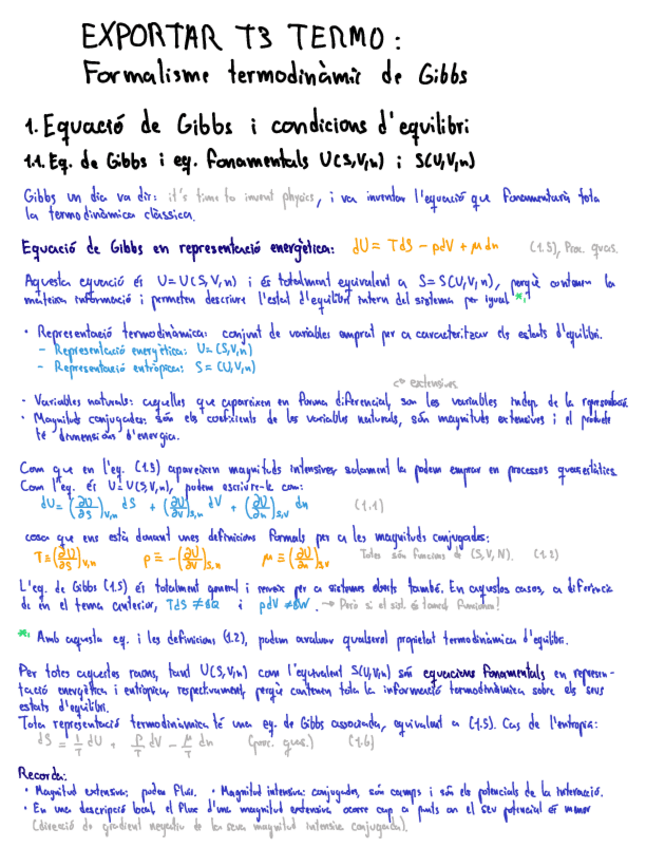 EXPORTAR T3 TERMO:
Formalisme termodinàmic de Gibbs
1. Equació de Gibbs i condicions d'equilibri
1.1. Eq. de Gibbs i eq. fonamentals U(S,V,n) i S(U,V,n)
Gibbs un dia va dir: it's time to invent physics, i va inventar l'equació que fonamentaria tota
la termodinàmica clàssica.
Equació de Gibbs en representació energètica: dU = TdS - pdV + μdn (1.5), Proc. quas.
Aquesta equació és U=U(S,V,n) i és totalment equivalent a S=S(U,V,n), perquè contenen la
mateixa informació i permeten descriure l'estat d'equilibri intern del sistema per igual *1
· Representació termodinàmica: conjunt de variables emprat per a caracteritzar els estats d'equilibri.
- Representació energètica: U=(S,V,n)
- Representació entròpica: S=(U,V,n)
extensives
· Variables naturals: aquelles que apareixen en forma diferencial, son les variables indep. de la representació.
· Magnituds conjugades: són els coeficients de les variables naturals, són magnituds extensives i el producte
té dimensions d'energia.
Com que en l'eq. (1.5) apareixen magnituds intensives solament la podem emprar en processos quasiestàtics.
Com l'eq. és U=U(S,V,n), podem escriure-la com:
dU = (∂U/∂S)V,n dS + (∂U/∂V)S,n dV + (∂U/∂n)S,V dn (1.1)
cosa que ens està donant unes definicions formals per a les magnituds conjugades:
T≡(∂U/∂S)V,n p≡-(∂U/∂V)S,n μ≡(∂U/∂n)S,V Totes són funcions de (S,V,N). (1.2)
L'eq. de Gibbs (1.5) és totalment general i serveix per a sistemes oberts també. En aquestos casos, a diferència
de en el tema anterior, TdS ≠ δQ i pdV ≠ δW. → Però si el sist. és tancat funciona!
*1 Amb aquesta eq. i les definicions (1.2), podem avaluar qualsevol propietat termodinàmica d'equilibri.
Per totes aquestes raons, tant U(S,V,n) com l'equivalent S(U,V,n) són equacions fonamentals en represen-
tació energètica i entròpica, respectivament, perquè contenen tota la informació termodinàmica sobre els seus
estats d'equilibri.
Tota representació termodinàmica té una eq. de Gibbs associada, equivalent a (1.5). Cas de l'entropia:
dS = 1/T dU + p/T dV - μ/T dn (proc. quas.) (1.6)
Recorda:
· Magnitud extensiva: poden fluir. · Magnitud intensiva: conjugades, són camps i són els potencials de la interacció.
· En una descripció local, el fluxe d'una magnitud extensiva ocorre cap a punts on el seu potencial és menor
(direcció de gradient negatiu de la seva magnitud intensiva conjugada).